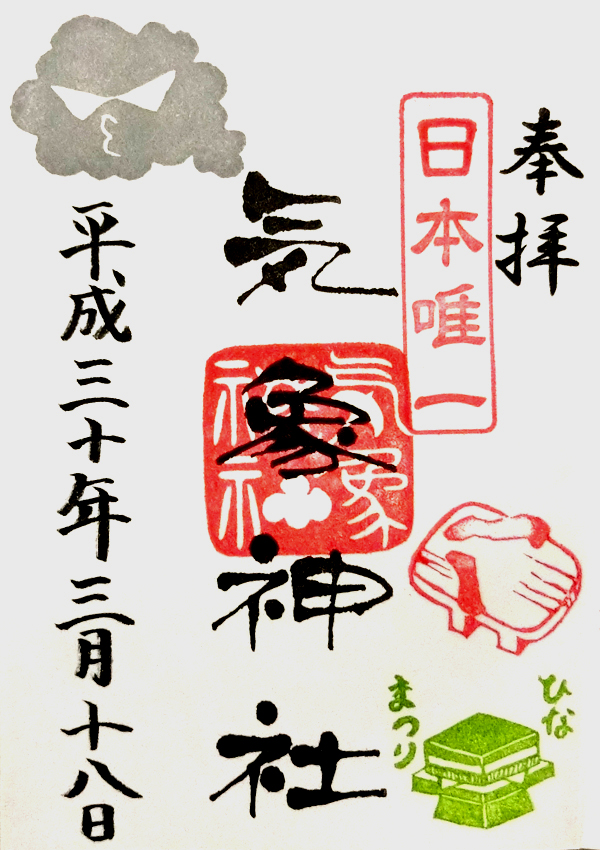 奉拝
日本唯一
気象神社
気象神社
ひな
まつり
平成三十年三月十八日